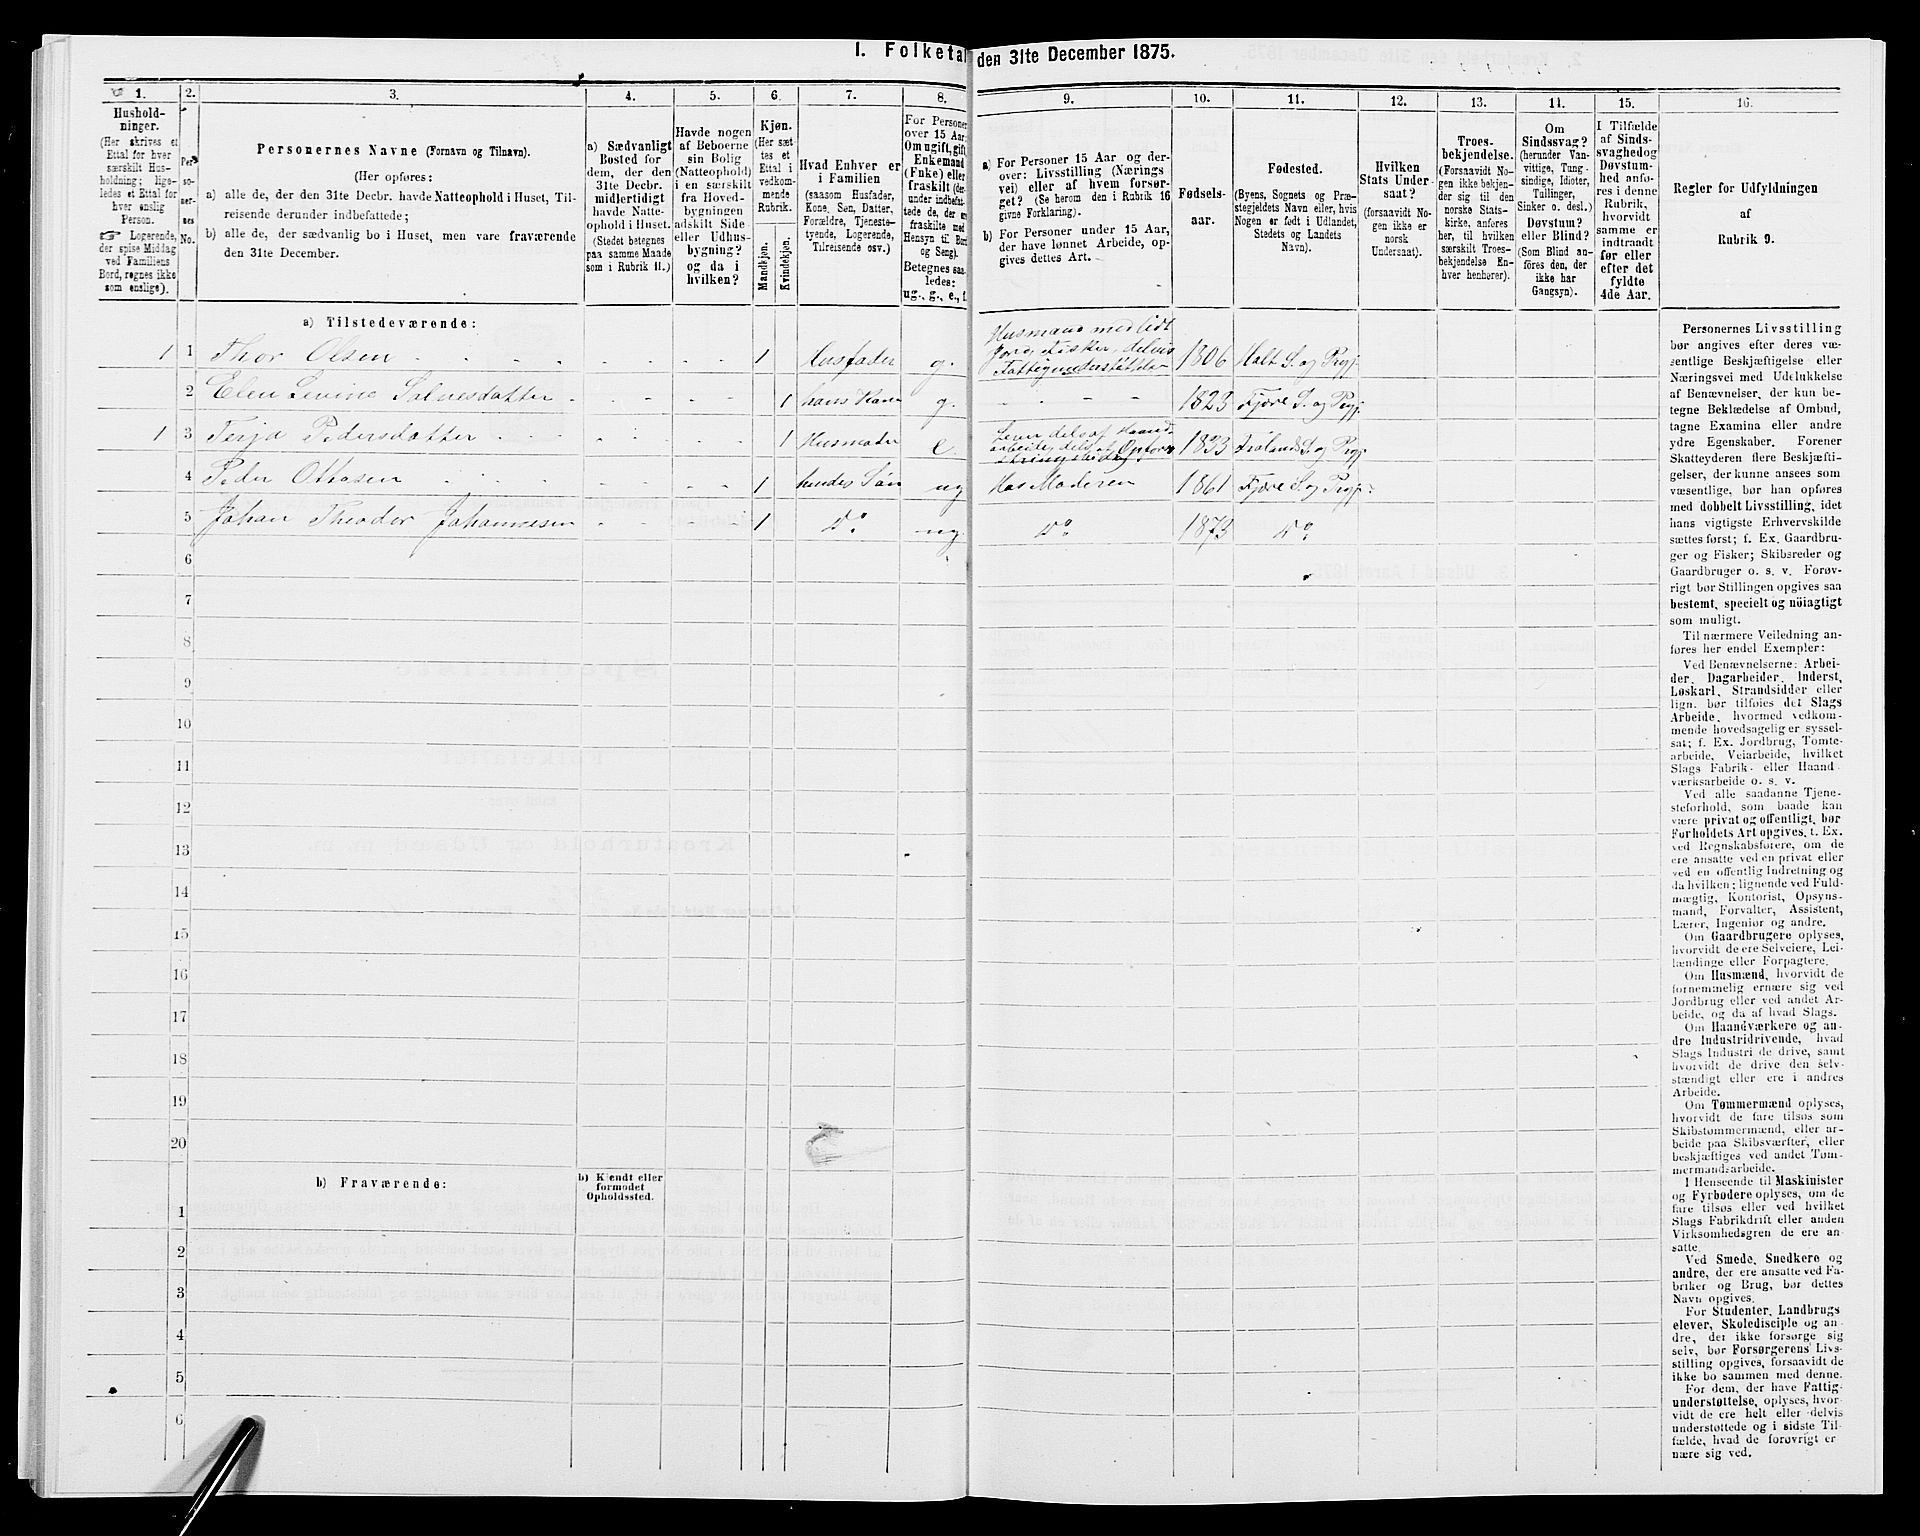 I. Folketal den 31te December 1875.
1. 2. 3. 4. 5. 6. 7. 8. 9. 10. 11. 12. 13. 14. 15. 16.
Hushold-
ninger.
(Her skrives et
Ettal for hver
særskilt Hus-
holdning; lige-
ledes et Ettal for
hver enslig
Person.
☞ Logerende,
der spise Middag
ved Familiens
Bord, regnes ikke
som enslige).
Per-
so-
ner-
nes
No.
Personernes Navne (Fornavn og Tilnavn).
(Her opføres:
a) alle de, der den 31te Decbr. havde Natteophold i Huset, Til-
reisende derunder indbefattede;
b) alle de, der sædvanlig bo i Huset, men vare fraværende
den 31te December.
a) Sædvanligt
Bosted for
dem, der den
31te Decbr.
midlertidigt
havde Natte-
ophold i Huset.
(Stedet betegnes
paa samme Maade
som i Rubrik 11.)
Havde nogen
af Beboerne
sin Bolig
(Natteophold)
i en særskilt
fra Hoved-
bygningen
adskilt Side-
eller Udhus-
bygning?
og da i
hvilken?
Kjøn.
(Her sæt-
tes et
Ettal i
vedkom-
mende
Rubrik.
Mandkjøn.
Kvindekjøn.
Hvad Enhver er
i Familien
(saasom Husfader,
Kone, Søn, Datter,
Forældre, Tjeneste-
tyende, Logerende,
Tilreisende osv.)
For Personer
over 15 Aar:
Om ugift, gift,
Enkemand
(Enke) eller
fraskilt (der-
under indbefat-
tede de, der ere
fraskilte med
Hensyn til Bord
og Seng).
Betegnes saa-
ledes:
ug., g., e., f.
a) For Personer 15 Aar og der-
over: Livsstilling (Nærings-
vei) eller af hvem forsør-
get? (Se herom den i Rubrik 16
givne Forklaring).
b) For Personer under 15 Aar,
der have lønnet Arbeide, op-
gives dettes Art.
Fødsels-
aar.
Fødested.
(Byens, Sognets og Præ-
stegjeldets Navn eller, hvis
Nogen er født i Udlandet,
Stedets og Landets
Navn).
Hvilken
Stats Under-
saat?
(forsaavidt No-
gen ikke er
norsk
Undersaat).
Troes-
bekjendelse.
(Forsaavidt No-
gen ikke bekjen-
der sig til den
norske Stats-
kirke, anføres
her, til hvilken
særskilt Troes-
bekjendelse En-
hver henhører).
Om
Sindssvag?
(herunder Van-
vittige, Tung-
sindige, Idioter,
Tullinger,
Sinker o. desl.)
Døvstum?
eller Blind?
(Som Blind an-
føres den, der
ikke har
Gangsyn).
I Tilfælde
af Sinds-
svaghed og
Døvstum-
hed anfø-
res i denne
Rubrik,
hvorvidt
samme er
indtraadt
før eller
efter det
fyldte
4de Aar.
Regler for Udfyldningen
af
Rubrik 9.
a) Tilstedeværende:
1 1 Thor Olsen 1 Husfader g. Husmand med lidt Jord, Fisker, delvis Fattigunderstøttelse 1806 Holt S. og Prgj.
2 Elen Sevine Salvesdatter 1 hans Kone g. 1823 Fjære S. og Prgj.
1 3 Terja Pedersdatter 1 Husmoder e. 1833 Frolands S. og Prgj.
4 Peder Ottosen 1 hendes Søn ug Hos Moderen 1861 Fjære S. og Prgj.
5 Johan Theodor Johannesen 1 Do ug. Do 1873 Do
6
7
8
9
10
11
12
13
14
15
16
17
18
19
20
b) Fraværende:
b) Kjendt eller
formodet
Opholdssted.
1
2
3
4
5
6
Personernes Livsstilling
bør angives efter deres væ-
sentlige Beskjæftigelse eller
Næringsvei med Udelukkelse
af Benævnelser, der kun be-
tegne Beklædelse af Ombud,
tagne Examina eller andre
ydre Egenskaber. Forener
Skatteyderen flere Beskjæfti-
gelser, der kunne ansees som
væsentlige, bør han opføres
med dobbelt Livsstilling, idet
hans vigtigste Erhvervskilde
sættes først; f. Ex. Gaardbru-
ger og Fisker; Skibsreder og
Gaardbruger o. s. v. Forøv-
rigt bør Stillingen opgives saa
bestemt, specielt og nöiagtigt
som muligt.
Til nærmere Veiledning an-
føres her endel Exempler:
Ved Benævnelserne: Arbei-
der, Dagarbeider, Inderst,
Løskarl, Strandsidder eller
lign. bør tilføies det Slags
Arbeide, hvormed vedkom-
mende hovedsagelig er syssel-
sat; f. Ex. Jordbrug, Tomte-
arbeide, Veiarbeide, hvilket
Slags Fabrik- eller Haand-
værksarbeide o. s. v.
Ved alle saadanne Tjene-
steforhold, som baade kan
være privat og offentligt, bør
Forholdets Art opgives, t. Ex.
ved Regnskabsførere, om de
ere ansatte ved en privat eller
ved en offentlig Indretning og
da hvilken; lignende ved Fuld-
mægtig, Kontorist, Opsyns-
mand, Forvalter, Assistent,
Lærer, Ingeniør og andre.
Om Gaardbrugere oplyses,
hvorvidt de ere Selveiere, Lei-
lændinge eller Forpagtere.
Om Husmænd, hvorvidt de
fornemmelig ernære sig ved
Jordbrug eller ved andet Ar-
beide, og da af hvad Slags.
Om Haandværkere og an-
dre Industridrivende, hvad
Slags Industri de drive, samt
hvorvidt de drive den selv-
stændigt eller ere i andres
Arbeide.
Om Tømmermænd oplyses,
hvorvidt de fare tilsøs som
Skibstømmermænd, eller ar-
beide paa Skibsværfter, eller
beskjæftiges ved andet Tøm-
mermandsarbeide.
I Henseende til Maskinister
og Fyrbødere oplyses, om de
fare tilsøs eller ved hvilket
Slags Fabrikdrift eller anden
Virksomhedsgren de ere an-
satte.
Ved Smede, Snedkere og
andre, der ere ansatte ved Fa-
briker og Brug, bør dettes
Navn opgives.
For Studenter, Landbrugs-
elever, Skoledisciple og an-
dre, der ikke forsørge sig
selv, bør Forsørgerens Livs-
stilling opgives, forsaavidt de
ikke bo sammen med denne.
For dem, der have Fattig-
understøttelse, oplyses, hvor-
vidt de ere helt eller delvis
understøttede og i sidste Til-
fælde, hvad de forøvrigt er-
nære sig ved.